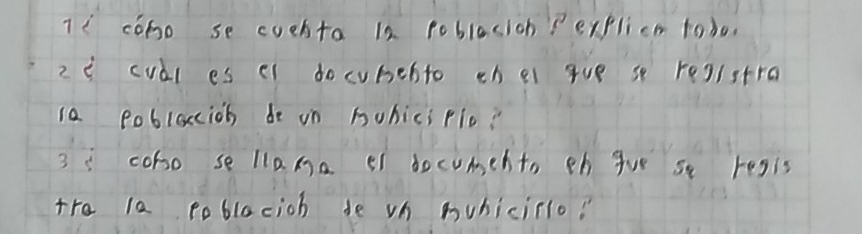 1 ¿ cómo se cuenta la poblacion? explica todo.
2 ¿ cuál es el documento en el que se registra
la poblacción de un municipio?
3 ¿ como se llama el documento en que se regis
tra la población de un municipio?